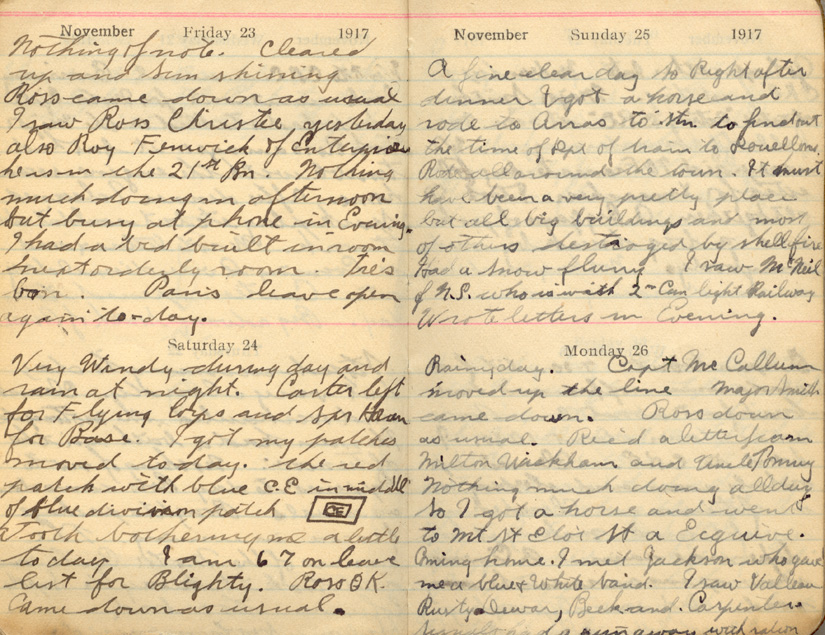 November Friday 23 1917
Nothing of note. Cleared
up and Sun shining
Ross came down as usual
I saw Ross Christie yesterday
also Roy Fenwick of Enterprise
he is in the 21st Bn. Nothing
much doing in afternoon
but busy at phone in Evening.
I had a bed built in room
next orderly room. Trés
bon. Paris leave open
again to-day.
Saturday 24
Very Windy during day and
rain at night. Carter left
for Flying Corps and Spr
for Base. I got my patches
moved today. the red
patch with blue C.E in middle
of blue division patch CE
a Tooth bothering me a little
today I am 67 on leave
list for Blighty. Ross OK.
Came down as usual.
November Sunday 25 1917
A fine clear day so Right after
dinner I got a horse and
rode to Arras to Stn. to find out
the time of Dpt of train to
Rode all around the town. It must
have been a very pretty place
but all big buildings and most
of others destroyed by shell fire
Had a snow flurry. I saw McNeil
of N.S. who is with 2nd Can light Railway
Wrote letters in Evening.
Monday 26
Rainy day. Capt McCallum
moved up the line Major Smith
came down. Ross down
as usual. Rec'd a letter from
Milton and Uncle
Nothing much doing all day
So I got a horse and went
to Mt St Eloi
Coming home. I met Jackson who gave
me a blue & White band. I saw
Rusty Dewar, Beck and Carpenter.
had a runaway with ration